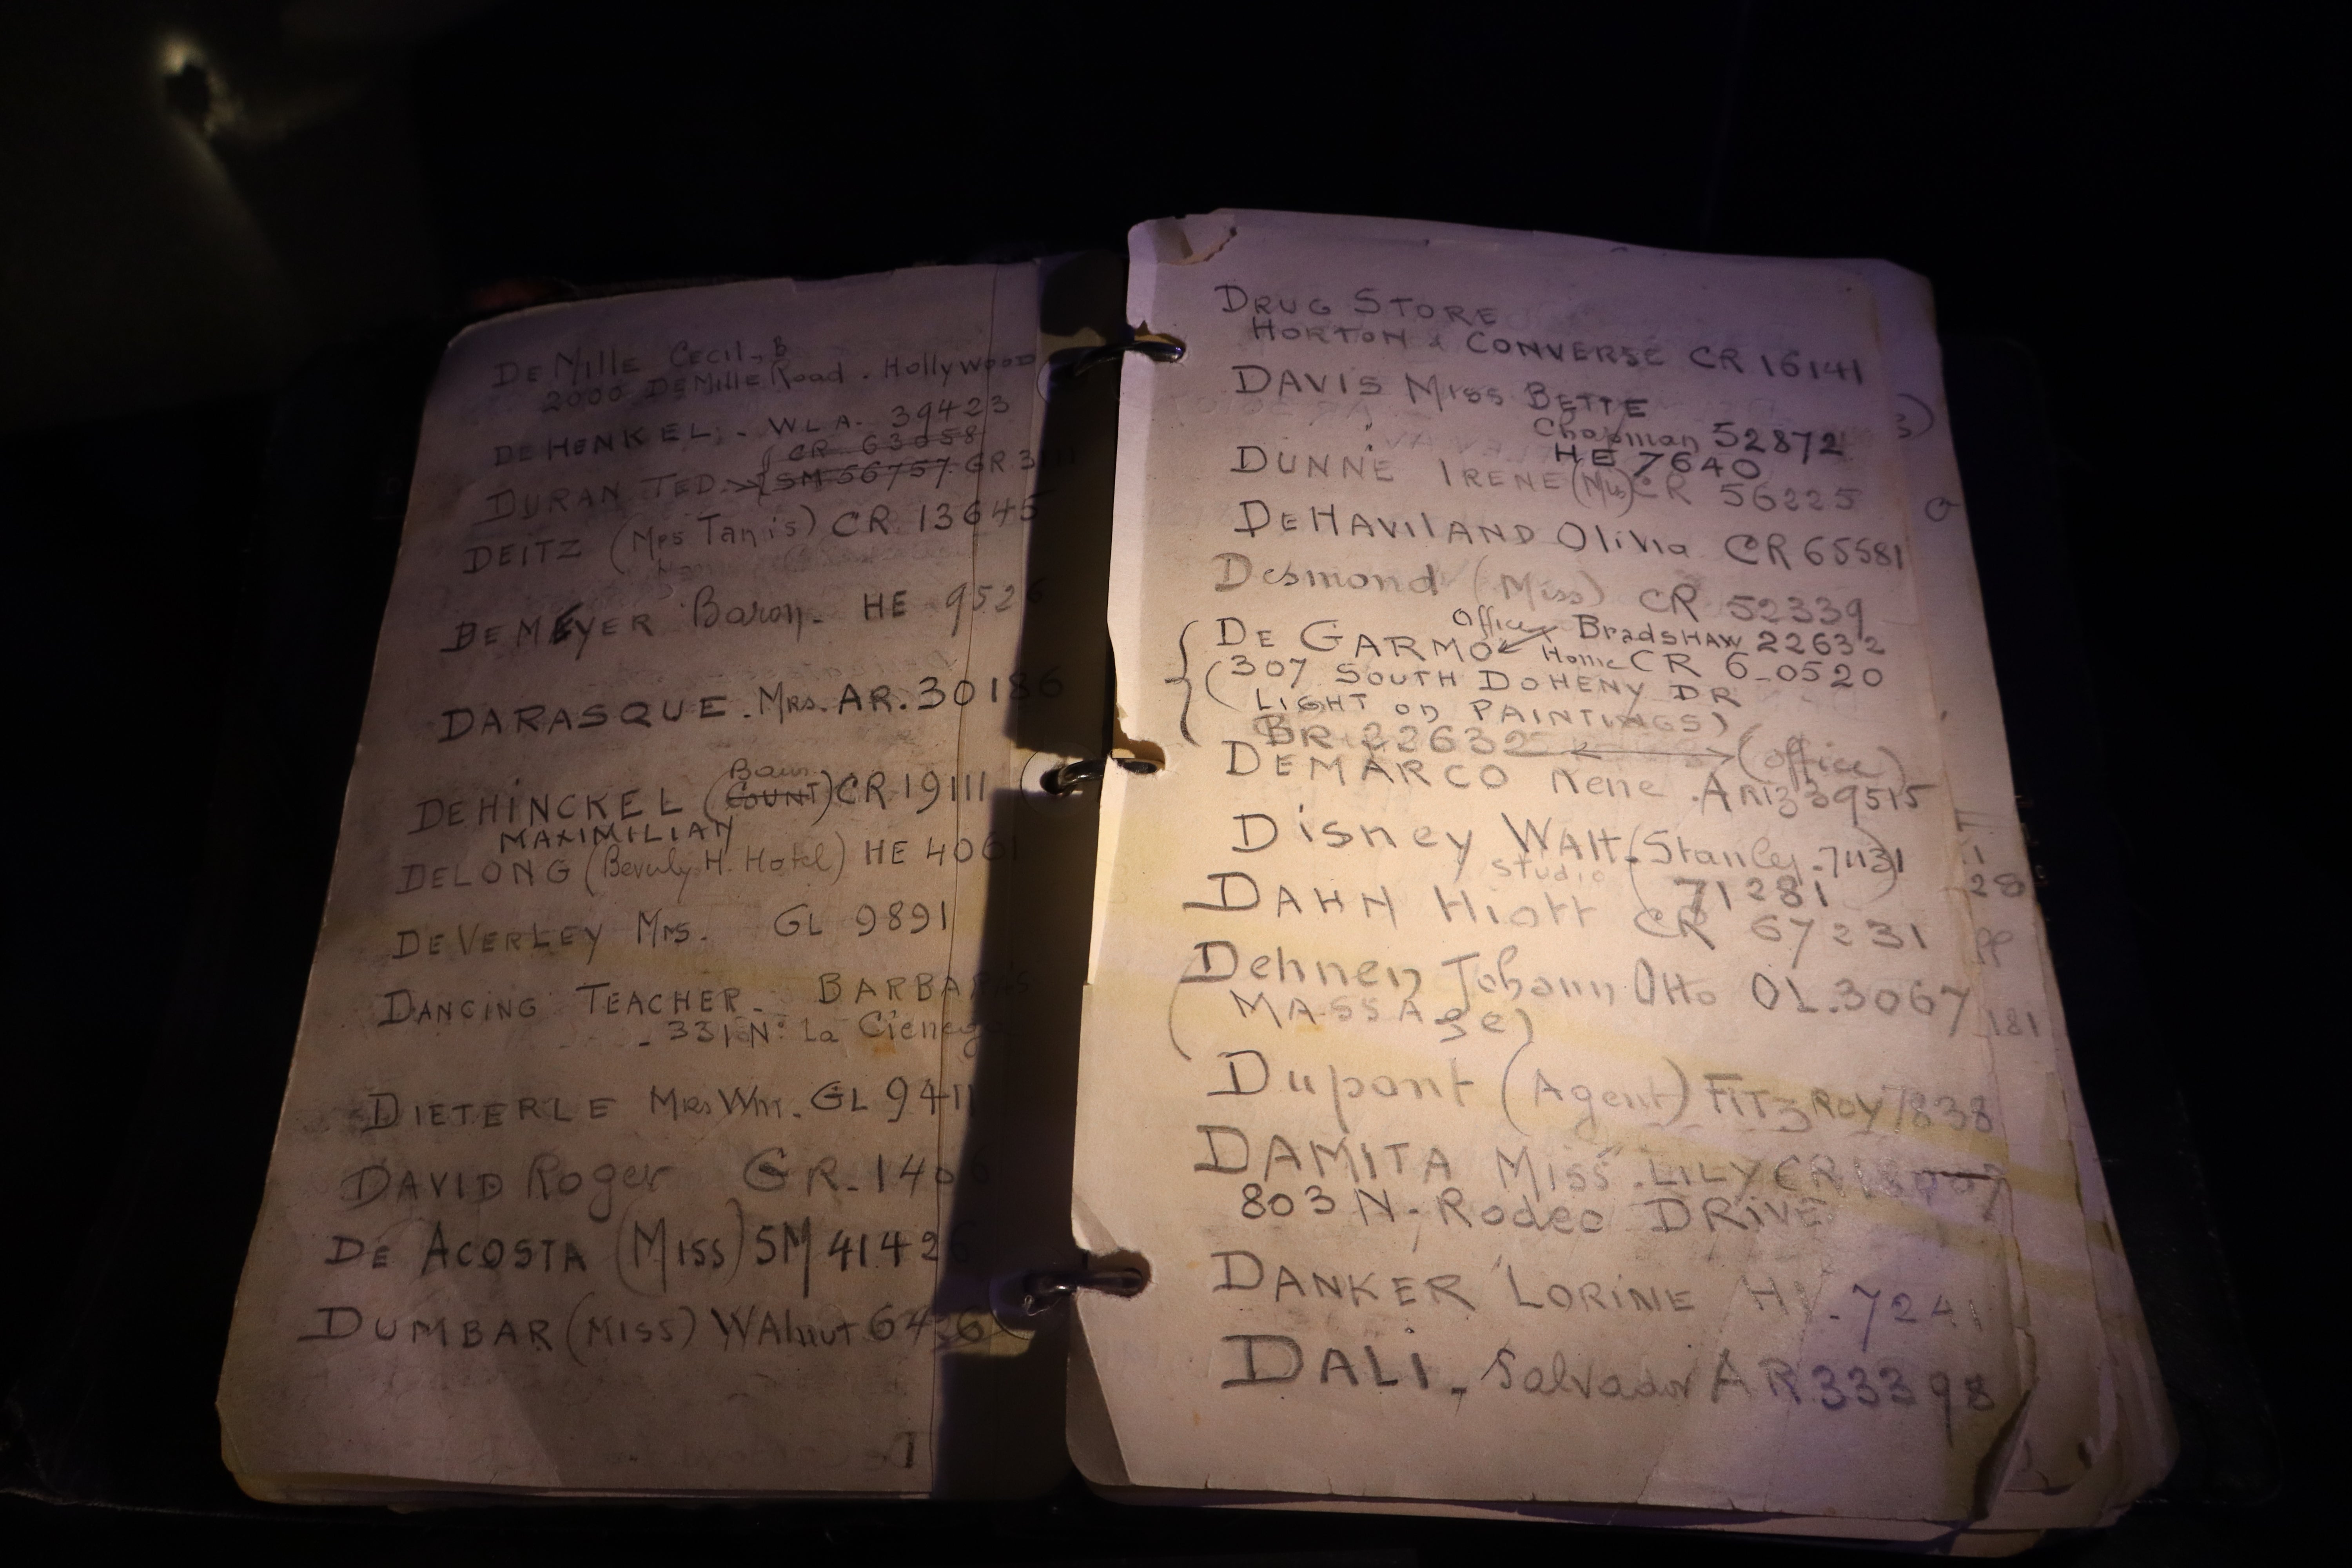 DEMille CECIL. B
2000 DEMille Road. Hollywood
DEHENKEL. - WLA. 39423
CR 63058
DURAN TED. SM 56757. GR 3111
DEITZ (Mrs Tanis) CR 13645
DEMEYER Baron. HE 952
DARASQUE. MRS. AR. 30186
Baron
DEHINCKEL (COUNT) CR 19111
MAXIMILIAN
DELONG (Beverly H. Hotel) HE 4061
DEVERLEY MRS. GL 9891
DANCING TEACHER. BARBARA'S
- 331 N. La Cienega
DIETERLE MRS Wm. GL 9411
DAVID Roger GR. 1406
DE ACOSTA (Miss) SM 41426
DUMBAR (MISS) WAlnut 6436
DRUG STORE
HORTON & CONVERSE CR 16141
DAVIS Miss BETTE
Chapman 52872
HE 7640
DUNNE IRENE (Miss) CR 56225
DEHAVILAND Olivia CR 65581
Desmond (Miss) CR 52339
Office Bradshaw 22632
DE GARMO Home CR 6-0520
(307 SOUTH DOHENY DR
LIGHT on PAINTINGS)
BR 22632 (office)
DEMARCO Rene. ARIZ 39515
DISNEY WAlt. (Stanley. 71131
studio 71281)
DAHN Hiatt CR 67231
Dehnen Johann Otto OL. 3067
(MASSAGE)
Dupont (Agent) FITZROY 7838
DAMITA Miss. LILY CR
803 N. Rodeo DRIVE
DANKER LORINE HI. 7241
DALI. Salvador AR 33398